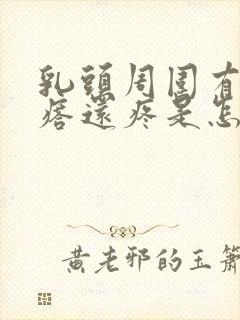 乳頭周圍有
痞還疼是怎
黃老邪的玉簫